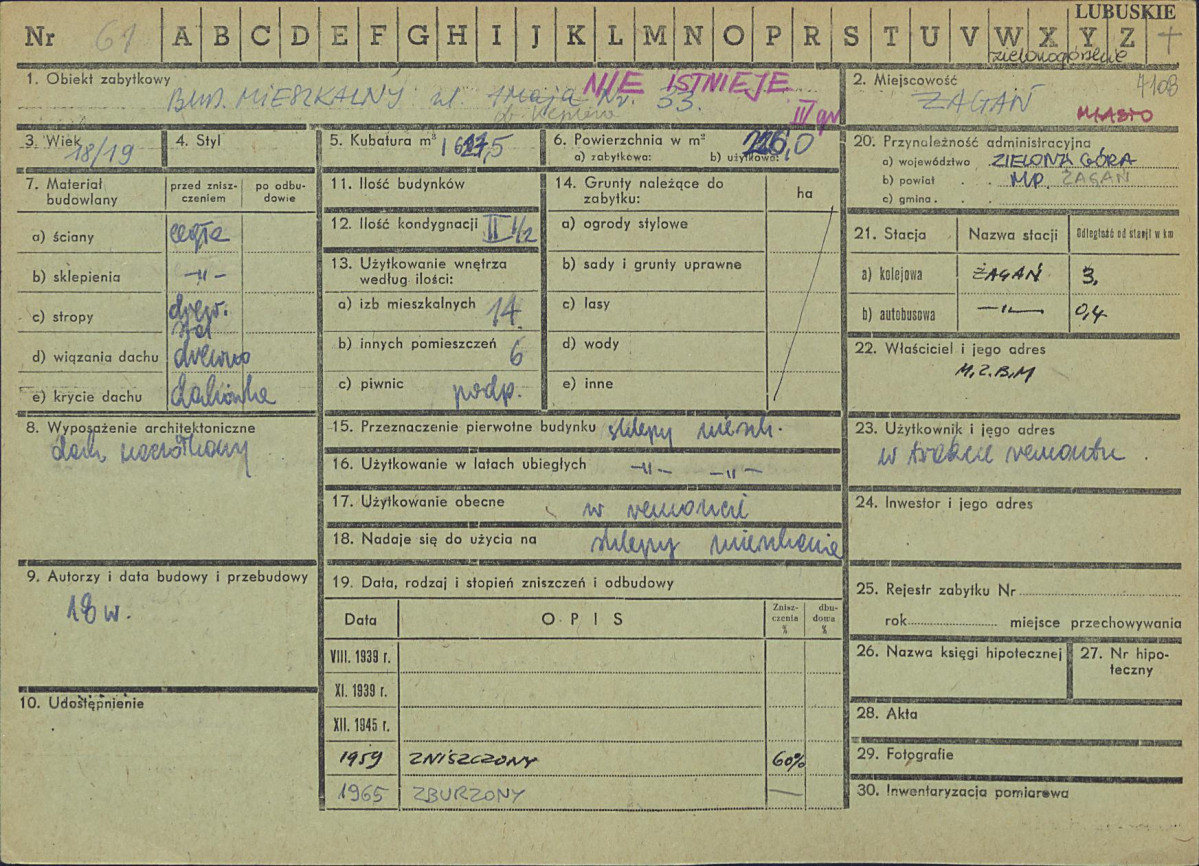 LUBUSKIE
Nr 61 A B C D E F G H I J K L M N O P R S T U V W X Y Z +
zielonogórskie
1. Obiekt zabytkowy
NIE ISTNIEJE
BUD. MIESZKALNY ul. 1 Maja Nr. 53.
IV gr
2. Miejscowość
4108
ŻAGAŃ
MIASTO
3. Wiek 18/19
4. Styl
5. Kubatura m³
6. Powierzchnia w m²
a) zabytkowa: b) użytkowa: 226,0
20. Przynależność administracyjna
a) województwo ZIELONA GÓRA
b) powiat M.P. ŻAGAŃ
c) gmina
7. Materiał budowlany
przed zniszczeniem
po odbudowie
a) ściany cegła
b) sklepienia —"—
c) stropy drew.
d) wiązania dachu drewno
e) krycie dachu dachówka
11. Ilość budynków
12. Ilość kondygnacji II 1/2
13. Użytkowanie wnętrza
według ilości:
a) izb mieszkalnych 14
b) innych pomieszczeń 6
c) piwnic podp.
14. Grunty należące do
zabytku:
ha
a) ogrody stylowe
b) sady i grunty uprawne
c) lasy
d) wody
e) inne
21. Stacja Nazwa stacji Odległość od stacji w km
a) kolejowa ŻAGAŃ 3,
b) autobusowa —"— 0,4
22. Właściciel i jego adres
M.Z.B.M
8. Wyposażenie architektoniczne
dach naczółkowy
15. Przeznaczenie pierwotne budynku sklepy mieszk.
16. Użytkowanie w latach ubiegłych —"— —"—
17. Użytkowanie obecne w remoncie
18. Nadaje się do użycia na sklepy mieszkanie
23. Użytkownik i jego adres
w trakcie remontu
24. Inwestor i jego adres
9. Autorzy i data budowy i przebudowy
18 w.
10. Udostępnienie
19. Data, rodzaj i stopień zniszczeń i odbudowy
Data OPIS Zniszczenia % dbudowa %
VIII. 1939 r.
XI. 1939 r.
XII. 1945 r.
1959 ZNISZCZONY 60%
1965 ZBURZONY —
25. Rejestr zabytku Nr
rok miejsce przechowywania
26. Nazwa księgi hipotecznej
27. Nr hipoteczny
28. Akta
29. Fotografie
30. Inwentaryzacja pomiarowa